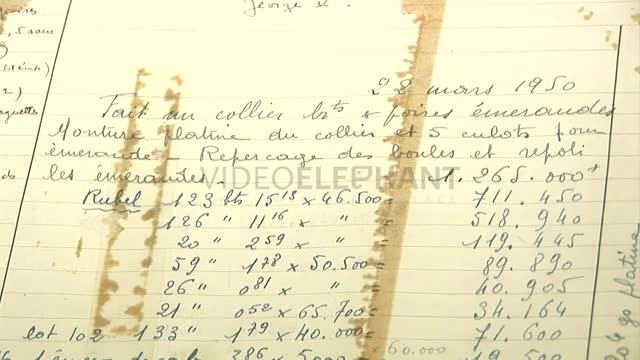 George V.
22 mars 1950
Fait un collier bts + poires émeraudes
Monture platine du collier et 5 culots pour
émeraude - Reperçage des boules et repoli
les émeraudes. 1.265.000
VIDEOELEPHANT
Rubel 123 bts 15 13 x 46.500 = 711.450
126 " 11 16 x " = 518.940
20 " 2 59 x " = 119.445
59 " 1 78 x 50.500 = 89.890
26 " 0 81 x " = 40.905
21 " 0 52 x 65.700 = 34.164
lot 102 133 " 1 79 x 40.000 = 71.600
386 x 5000 60.000 19.500
platine